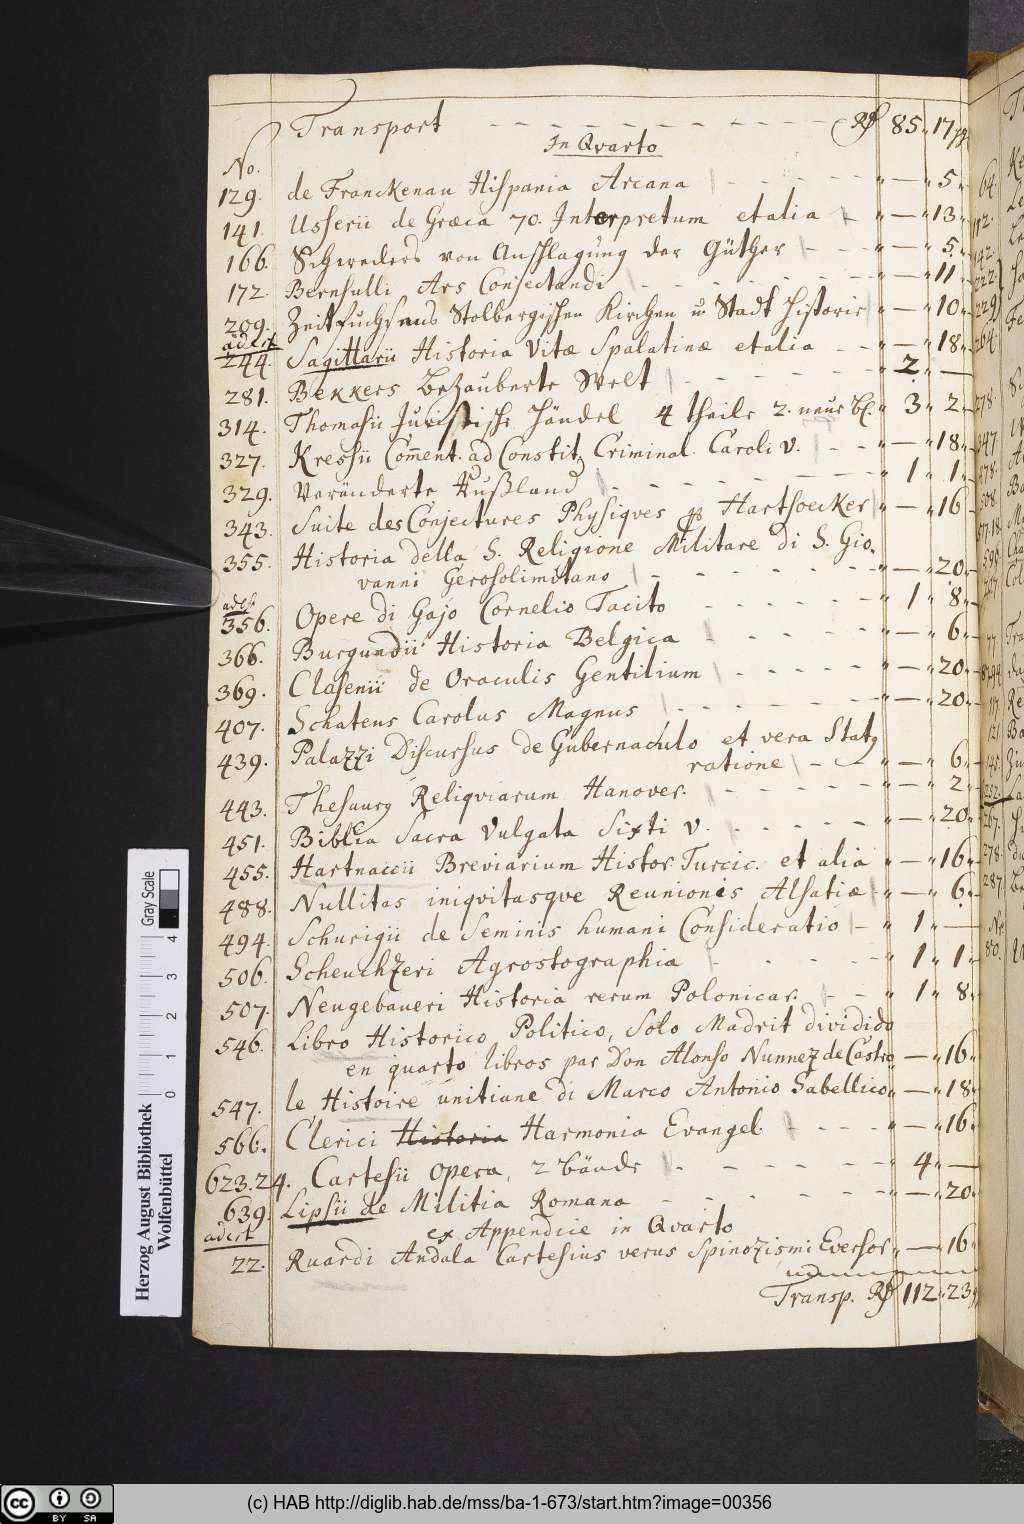 Transport - - - - - - - - - - Rß 85 " 17 gg
In Qvarto
No.
129. de Franckenau Hispania Arcana - - - - " — " 5 "
141. Usserii de Græca 70. Interpretum et alia - " — " 13 "
166. Schweders von Anschlagung der Güther - - " — " 5 "
172. Bernoulli Ars Conjectandi - - - - - " — " 11 "
209. Zeitfuchsens Stolbergischen Kirchen u Stadt Historie " — " 10 "
adest
244. Sagittarii Historia Vitæ Spalatinæ et alia - - " — " 18 "
281. Bekkers bezauberte Welt - - - - - " 2 " —
314. Thomasii Juristische Händel 4 theile 2. neue Bl. " 3 " 2 "
327. Kressii Com̄ent. ad Constit. Criminal. Caroli V. - - " — " 18 "
329. Verändertes Rußland - - - - - " 1 " 1 "
343. Suite des Conjectures Physiqves p Hartsoecker " — " 16
355. Historia della S. Religione Militare di S. Gio-
vanni Gerosolimitano - - - - - " — " 20 "
adest
356. Opere di Gajo Cornelio Tacito - - - - " 1 " 8 "
366. Burgundii Historia Belgica - - - - " — " 6 "
369. Clasenii de Oraculis Gentilium - - - - " — " 20 "
407. Schatens Carolus Magnus - - - - - " — " 20 "
439. Palazzi Discursus de Gubernaculo et vera Statq
ratione - - - " — " 6 "
443. Thesaurq Reliqviarum Hanover. - - - - " — " 2 "
451. Biblia Sacra Vulgata Sixti V. - - - - " — " 20 "
455. Hartnaccii Breviarium Histor. Turcic. et alia " — " 16 "
488. Nullitas iniqvitasqve Reunionis Alsatiæ - " — " 6 "
494. Schurigii de Seminis humani Consideratio - " 1 " —
506. Scheuchzeri Agrostographia - - - - " 1 " 1 "
507. Neugebaueri Historia rerum Polonicar. - - " 1 " 8 "
546. Libro Historico Politico, Solo Madrit dividido
en quarto libros par Don Alonso Nunnez de Castro " — " 16 "
547. le Histoire unitiane di Marco Antonio Sabellico " — " 18 "
566. Clerici Historia Harmonia Evangel. - - - - " — " 16 "
623.24. Cartesii opera, 2 bände - - - - - " 4 " —
639. Lipsii de Militia Romana - - - - - " — " 20 "
adest
ex Appendice in Qvarto
22. Ruardi Andala Cartesius verus Spinozismi Eversor " — " 16 "
Transp. Rß 112 " 23
Herzog August Bibliothek
Wolfenbüttel
0 1 2 3 4
Gray Scale
cc BY SA
(c) HAB http://diglib.hab.de/mss/ba-1-673/start.htm?image=00356